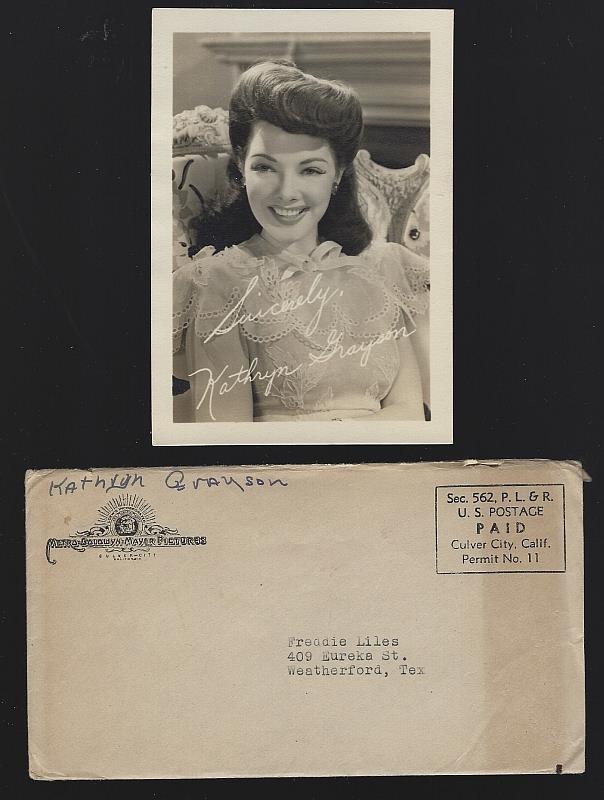 Sincerely,
Kathryn Grayson
Kathryn Grayson
METRO-GOLDWYN-MAYER PICTURES
CULVER-CITY
CALIFORNIA
Sec. 562, P. L. & R.
U. S. POSTAGE
PAID
Culver City, Calif.
Permit No. 11
Freddie Liles
409 Eureka St.
Weatherford, Tex